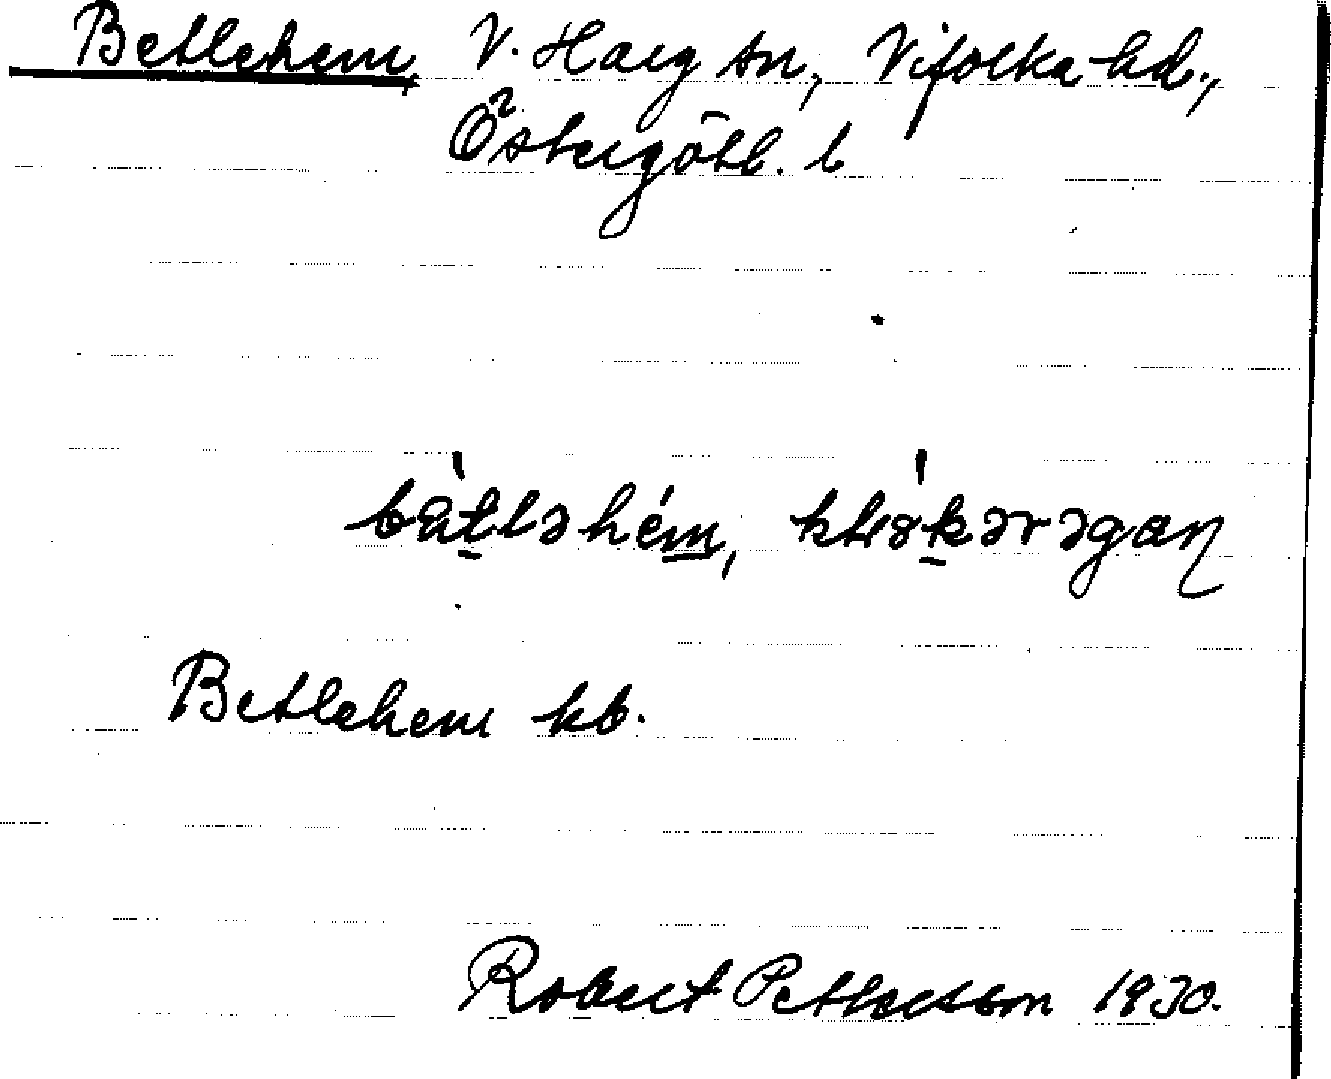 Betlehem, V. Harg sn, Vifolka hd.,
Östergötl. l
bätləhém,
Betlehem kb.
Robert Pettersson 1930.